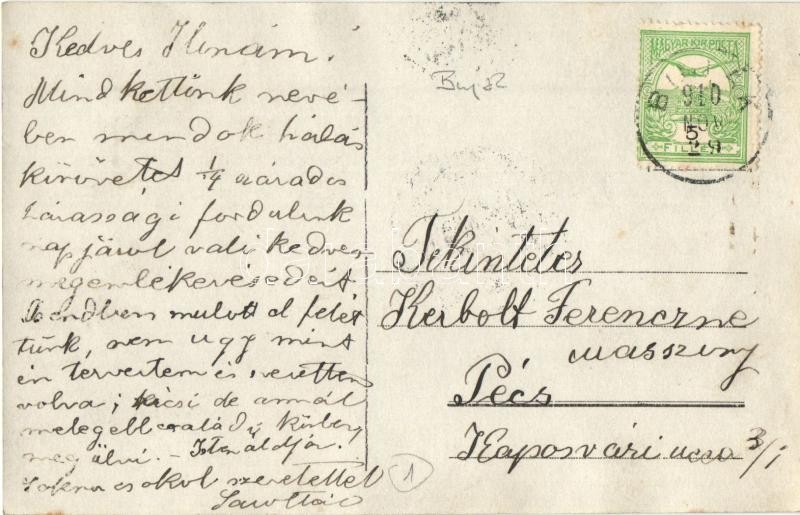 Kedves Ilonám!
Mindkettünk nevé-
ben mondok hálás
köszönetet 1/4 százados
házassági fordulónk
napjáról való kedves
megemlékezésedért
Csendben mulott el felet-
tünk, nem ugy mint
én terveztem és szerettem
volna; kicsi de annál
melegebb családi körben
meg ülni. – Isten áldja.
csokol szeretettel
Sarolta
Bujsz
MAGYAR KIR. POSTA
910
NOV
5
FILLÉR
Tekintetes
Kerbolt Ferenczné
Pécs
Kaposvári ucca 3/1
1